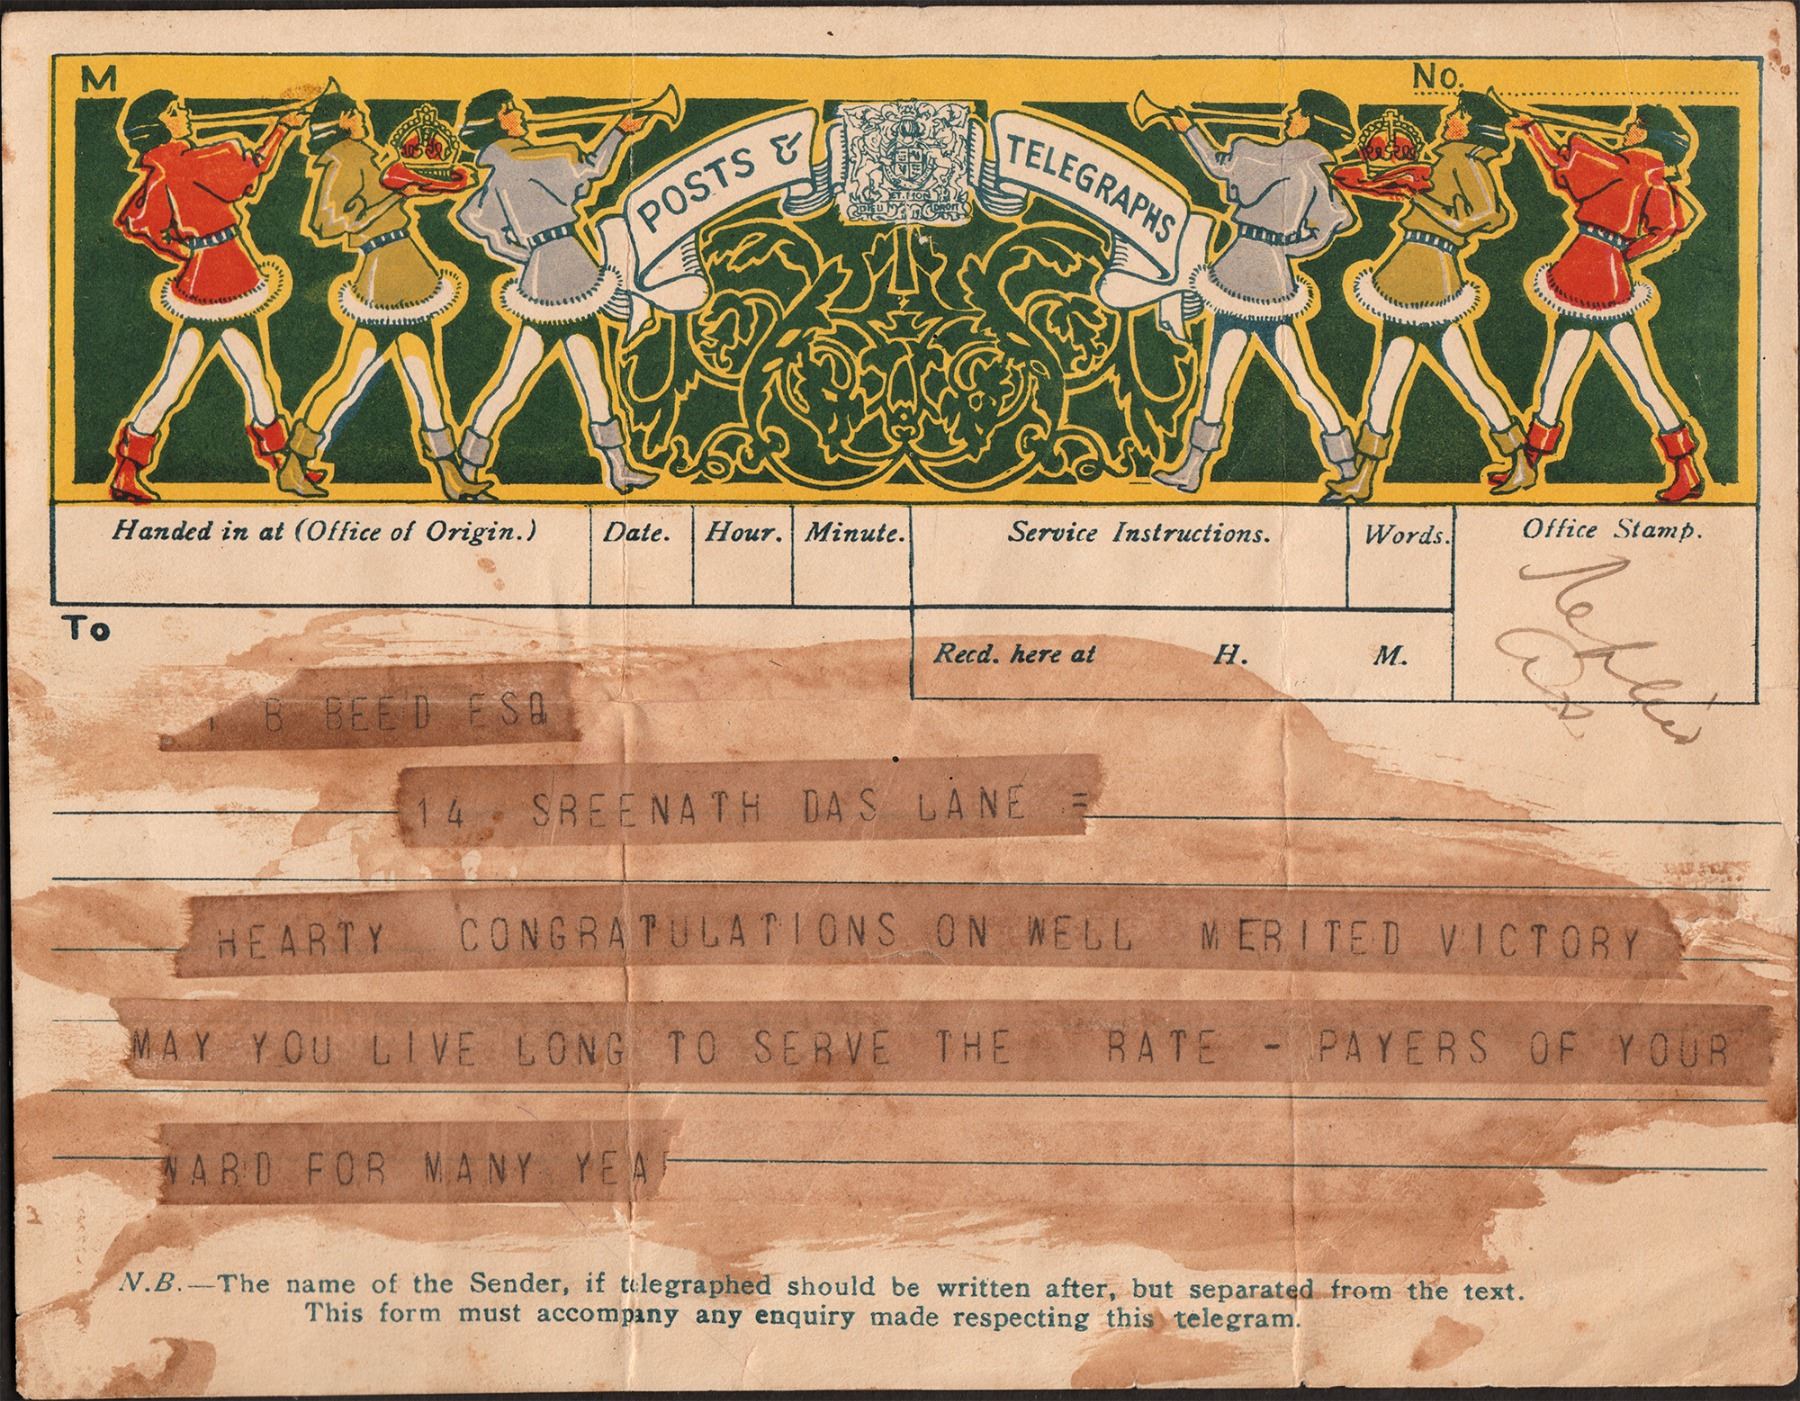 M
No.
POSTS & TELEGRAPHS
DIEU ET MON DROIT
Handed in at (Office of Origin.) Date. Hour. Minute. Service Instructions. Words. Office Stamp.
To
Recd. here at H. M.
B BEED ESQ
14 SREENATH DAS LANE =
HEARTY CONGRATULATIONS ON WELL MERITED VICTORY
MAY YOU LIVE LONG TO SERVE THE RATE - PAYERS OF YOUR
WARD FOR MANY YEAR
N.B.—The name of the Sender, if telegraphed should be written after, but separated from the text.
This form must accompany any enquiry made respecting this telegram.